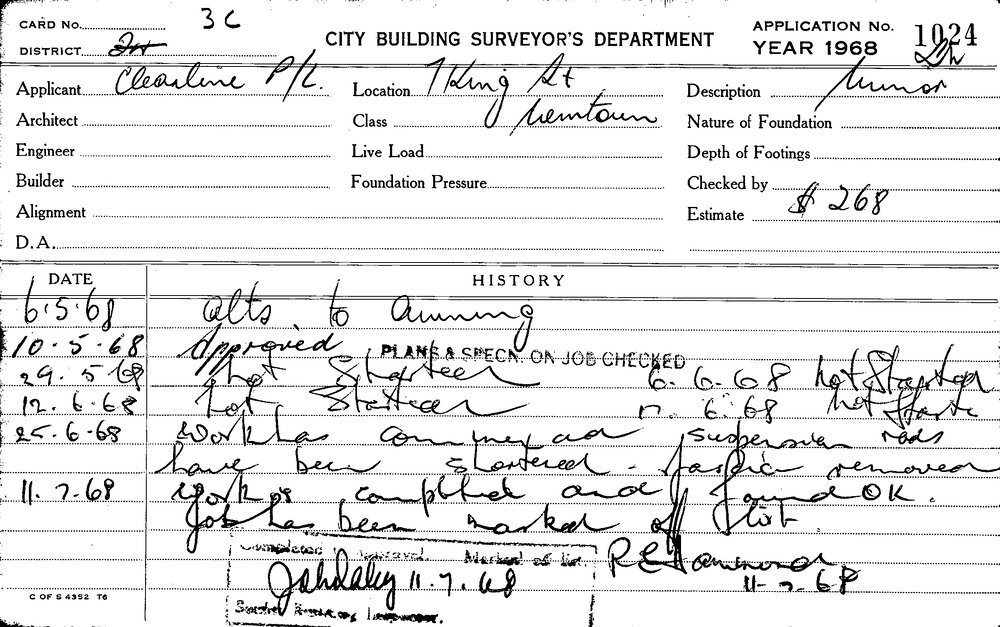 CARD No. 3C
CITY BUILDING SURVEYOR'S DEPARTMENT
APPLICATION No. 1024
DISTRICT
YEAR 1968
Applicant Clearline P/L.
Location 7 King St
Description Minor
Architect
Class Newtown
Nature of Foundation
Engineer
Live Load
Depth of Footings
Builder
Foundation Pressure
Checked by
Alignment
Estimate $ 268
D.A.
DATE HISTORY
6.5.68 Alts to awning
10.5.68 Approved PLANS & SPECN. ON JOB CHECKED
29.5.68 Not Started 6.6.68 Not Started
12.6.68 Not Started 17.6.68 Not Started
25.6.68 Work has commenced suspension rods
have been shortened - fascia removed
11.7.68 Work is completed and found OK.
Job has been marked off list
Completed Approved Marked off list
11.7.68
R E Hammond
11-7-68
Senior
C OF S 4352 T6